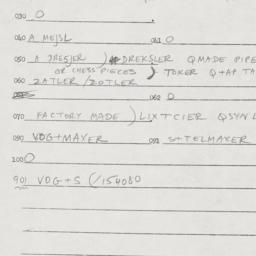 030 O
040 A MEJSL 041 O
050 A DREJER ) DREKSLER Q MADE PIPE
OR CHESS PIECES ) TOKER Q+AP TA
060 ZATLER/ZOTLER
062 O
070 FACTORY MADE ) LIXTCIER QSYN L
080 VOG+MAYER 081 S+TELMAXER
100 O
901 VOG+S (/154080